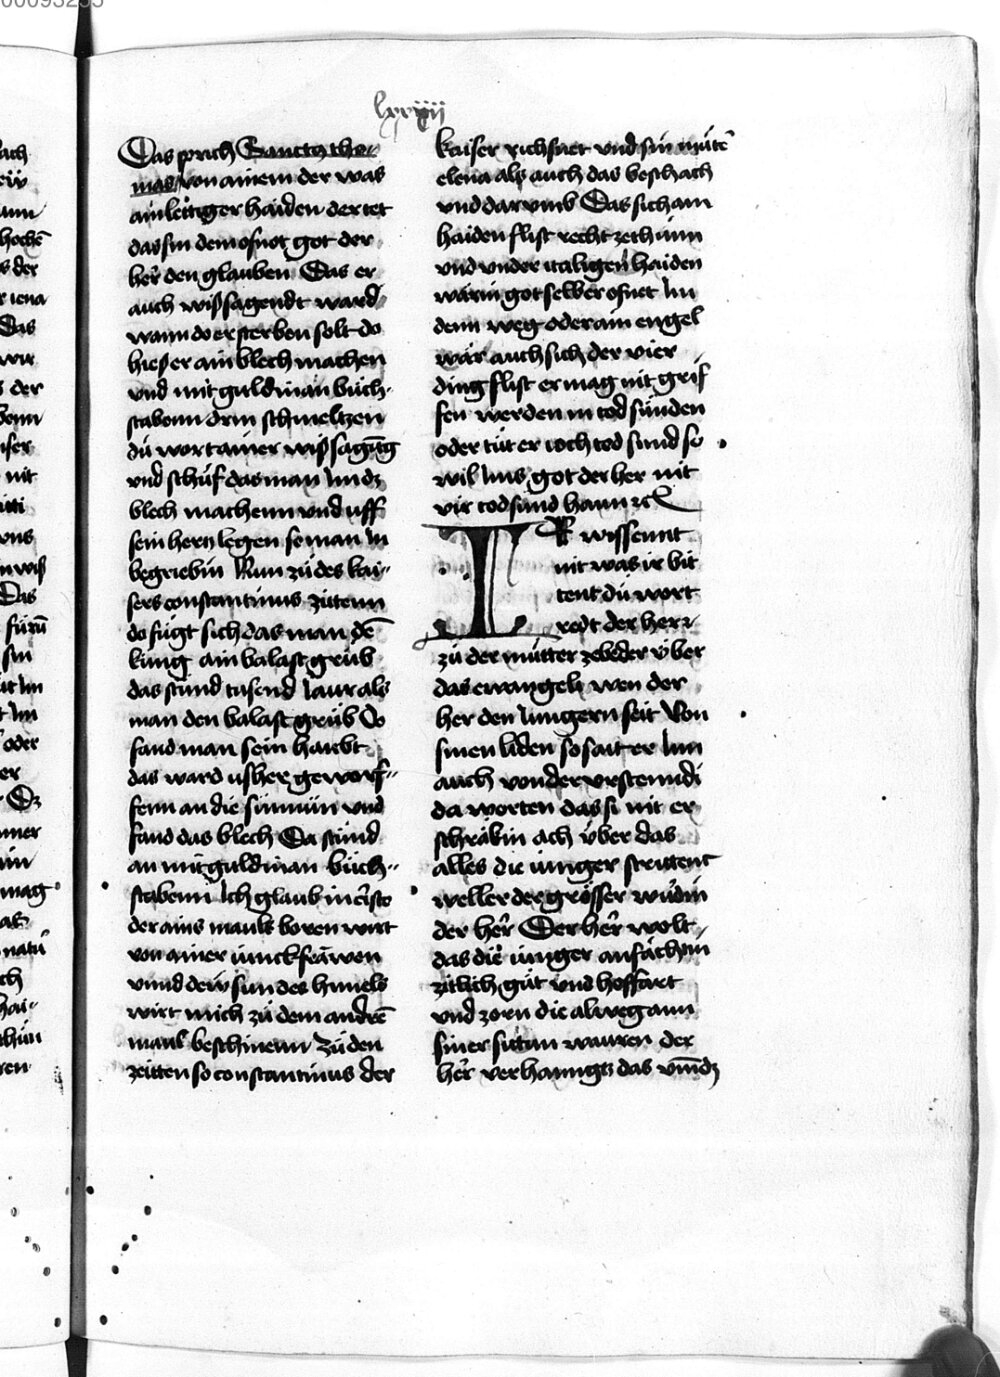 lxxxiiii
Das sprich Sanctus tho-
mas von ainem der was
ain lettiger haiden der tet
das sin dem ofnot got der
her den glauben Das er
auch wissagendt ward
wann do er sterben solt do
hieß er ain blech machen
und mit guldinan büch-
stabenn drin schmeltzen
dü wort ainer wissagūg
und schüf das man im dz
blech machenn und uff
sein hercz legen so man in
begriebin Nun zü des kai-
sers constantinus zittenn
do fügt sich das man dē
küng ain balast grüb
das stünd tusend Jaur als
man den balast grüb Do
fand man sein haubt
das ward usher geworf-
fenn an die sünnün und
fand das blech Da stünd
an mit guldinan büch-
stabenn Ich glaub in cristo
der ains mauls boren wirt
von ainer iunckfrāwen
unnd dew sun des himels
wirt mich zü dem andrē
maul beschinenn zü den
zeitten so constantinus der
kaiser richsnet und sin mütē
elena als auch das beschach
und darumb Das sich am
haiden flist recht ze thünn
und under italigen haiden
wārin got selber ofnet Im
denn weg oder ain engel
wār auch sich der vier
ding flist er mag nit grif
fen werden in tod sünden
oder tüt er ioch tod sund so
wil uns got der her nit
vir tod sund hann etc
IR wissennt
nit was ir bit
tent dü wort
redt der herr
zü der mütter zebedei über
das ewangeli wen der
her den Jungern seit Von
sinen liden so sait er Inn
auch von der urstenndi
da worten das si nit er
schräkin ach über das
alles die iunger strittent
weller der grösser wūrin
der her Der her wolt
das die iunger anfāchtin
zitlich güt und hoffart
und zorn die alweg ann
siner sittin wauren der
her verhanngt das unndz